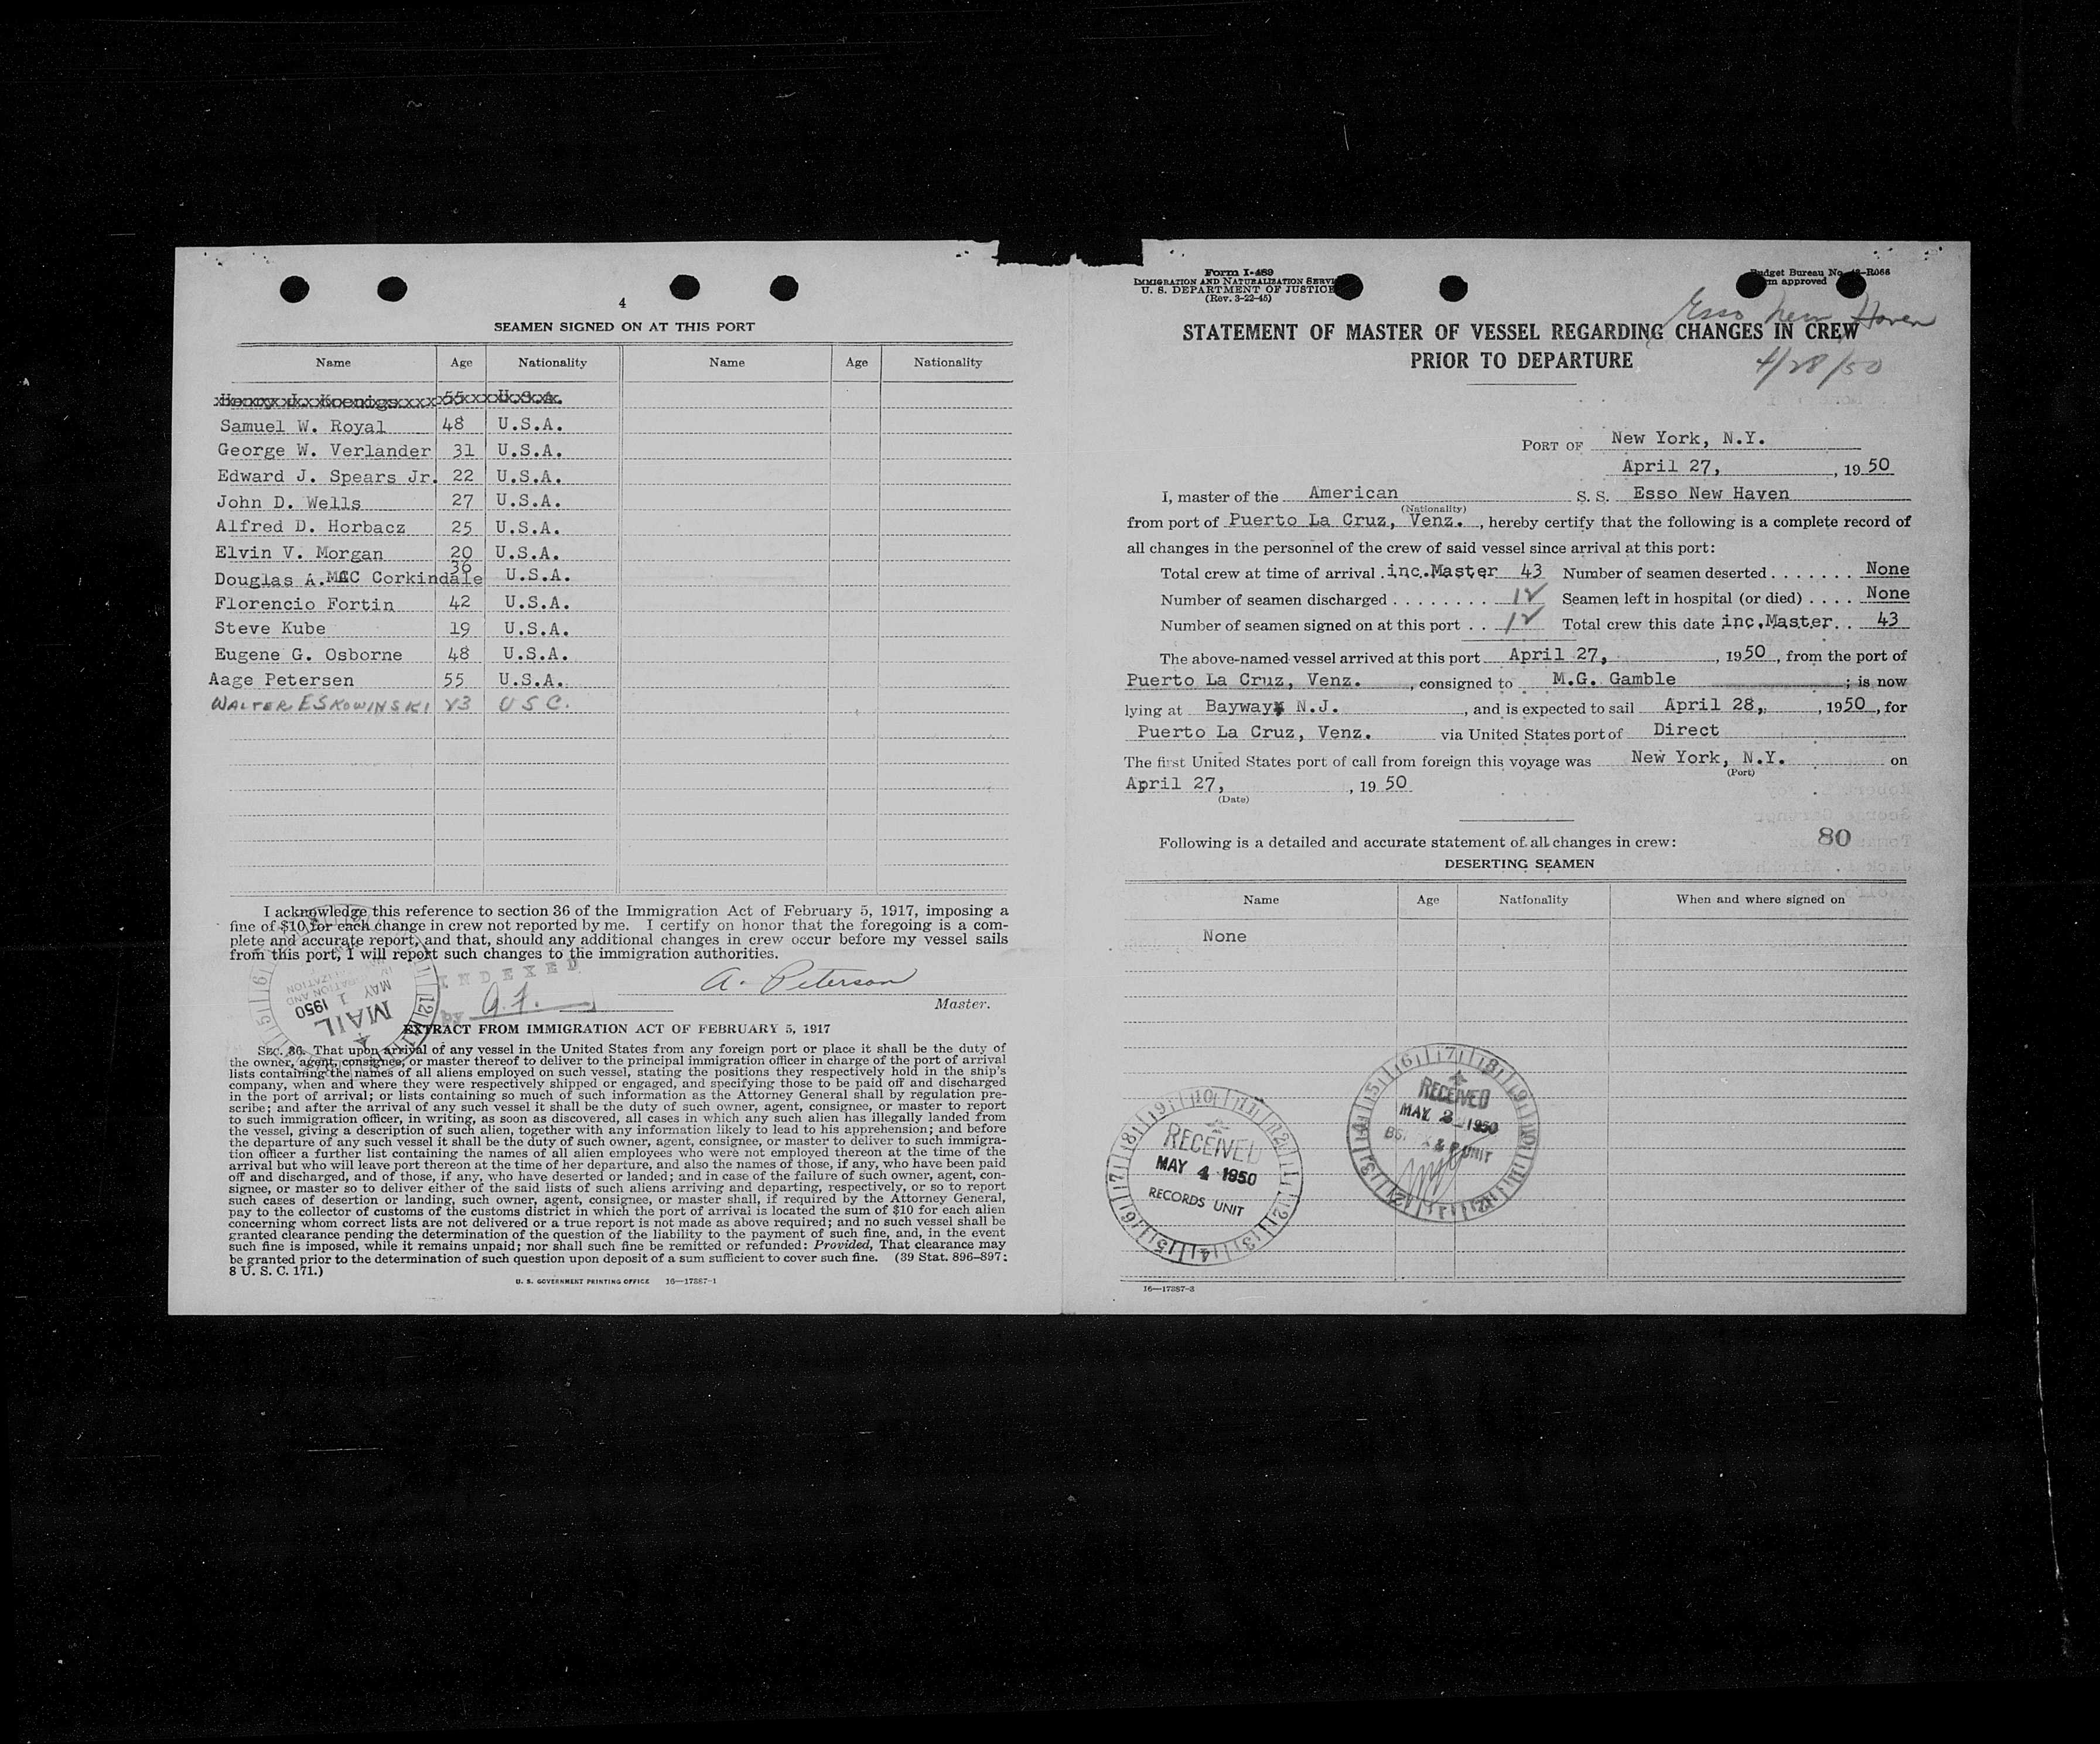 4
SEAMEN SIGNED ON AT THIS PORT
Name Age Nationality Name Age Nationality
Henry J. Koenigs 55 U.S.A.
Samuel W. Royal 48 U.S.A.
George W. Verlander 31 U.S.A.
Edward J. Spears Jr. 22 U.S.A.
John D. Wells 27 U.S.A.
Alfred D. Horbacz 25 U.S.A.
Elvin V. Morgan 20 U.S.A.
Douglas A. MAC Corkindale 36 U.S.A.
Florencio Fortin 42 U.S.A.
Steve Kube 19 U.S.A.
Eugene G. Osborne 48 U.S.A.
Aage Petersen 55 U.S.A.
WALTER ESKOWINSKI 23 U S C.
I acknowledge this reference to section 36 of the Immigration Act of February 5, 1917, imposing a
fine of $10 for each change in crew not reported by me. I certify on honor that the foregoing is a com-
plete and accurate report, and that, should any additional changes in crew occur before my vessel sails
from this port, I will report such changes to the immigration authorities.
INDEXED
by G.F.
A. Peterson
Master.
MAIL
MAY 1 1950
EXTRACT FROM IMMIGRATION ACT OF FEBRUARY 5, 1917
SEC. 36. That upon arrival of any vessel in the United States from any foreign port or place it shall be the duty of
the owner, agent, consignee, or master thereof to deliver to the principal immigration officer in charge of the port of arrival
lists containing the names of all aliens employed on such vessel, stating the positions they respectively hold in the ship's
company, when and where they were respectively shipped or engaged, and specifying those to be paid off and discharged
in the port of arrival; or lists containing so much of such information as the Attorney General shall by regulation pre-
scribe; and after the arrival of any such vessel it shall be the duty of such owner, agent, consignee, or master to report
to such immigration officer, in writing, as soon as discovered, all cases in which any such alien has illegally landed from
the vessel, giving a description of such alien, together with any information likely to lead to his apprehension; and before
the departure of any such vessel it shall be the duty of such owner, agent, consignee, or master to deliver to such immigra-
tion officer a further list containing the names of all alien employees who were not employed thereon at the time of the
arrival but who will leave port thereon at the time of her departure, and also the names of those, if any, who have been paid
off and discharged, and of those, if any, who have deserted or landed; and in case of the failure of such owner, agent, con-
signee, or master so to deliver either of the said lists of such aliens arriving and departing, respectively, or so to report
such cases of desertion or landing, such owner, agent, consignee, or master shall, if required by the Attorney General,
pay to the collector of customs of the customs district in which the port of arrival is located the sum of $10 for each alien
concerning whom correct lists are not delivered or a true report is not made as above required; and no such vessel shall be
granted clearance pending the determination of the question of the liability to the payment of such fine, and, in the event
such fine is imposed, while it remains unpaid; nor shall such fine be remitted or refunded: Provided, That clearance may
be granted prior to the determination of such question upon deposit of a sum sufficient to cover such fine. (39 Stat. 896-897;
8 U. S. C. 171.)
U. S. GOVERNMENT PRINTING OFFICE 16—17387-1
Form I-489
IMMIGRATION AND NATURALIZATION SERVI
U. S. DEPARTMENT OF JUSTICE
(Rev. 3-22-45)
Budget Bureau No. 43-R066
approved
Esso New Haven
STATEMENT OF MASTER OF VESSEL REGARDING CHANGES IN CREW
PRIOR TO DEPARTURE
4/28/50
PORT OF New York, N.Y.
April 27, , 19 50
I, master of the American S. S. Esso New Haven
(Nationality)
from port of Puerto La Cruz, Venz. , hereby certify that the following is a complete record of
all changes in the personnel of the crew of said vessel since arrival at this port:
Total crew at time of arrival inc.Master 43 Number of seamen deserted . . . . . . . None
Number of seamen discharged . . . . . . . . 12 Seamen left in hospital (or died) . . . . None
Number of seamen signed on at this port . . 12 Total crew this date inc.Master. . 43
The above-named vessel arrived at this port April 27, , 1950 , from the port of
Puerto La Cruz, Venz. , consigned to M.G. Gamble ; is now
lying at Bayway, N.J. , and is expected to sail April 28, , 1950 , for
Puerto La Cruz, Venz. via United States port of Direct
The first United States port of call from foreign this voyage was New York, N.Y. on
(Port)
April 27, , 19 50
(Date)
80
Following is a detailed and accurate statement of all changes in crew:
DESERTING SEAMEN
Name Age Nationality When and where signed on
None
RECEIVED
MAY 4 1950
RECORDS UNIT
RECEIVED
MAY 2 1950
UNIT
16—17387-3